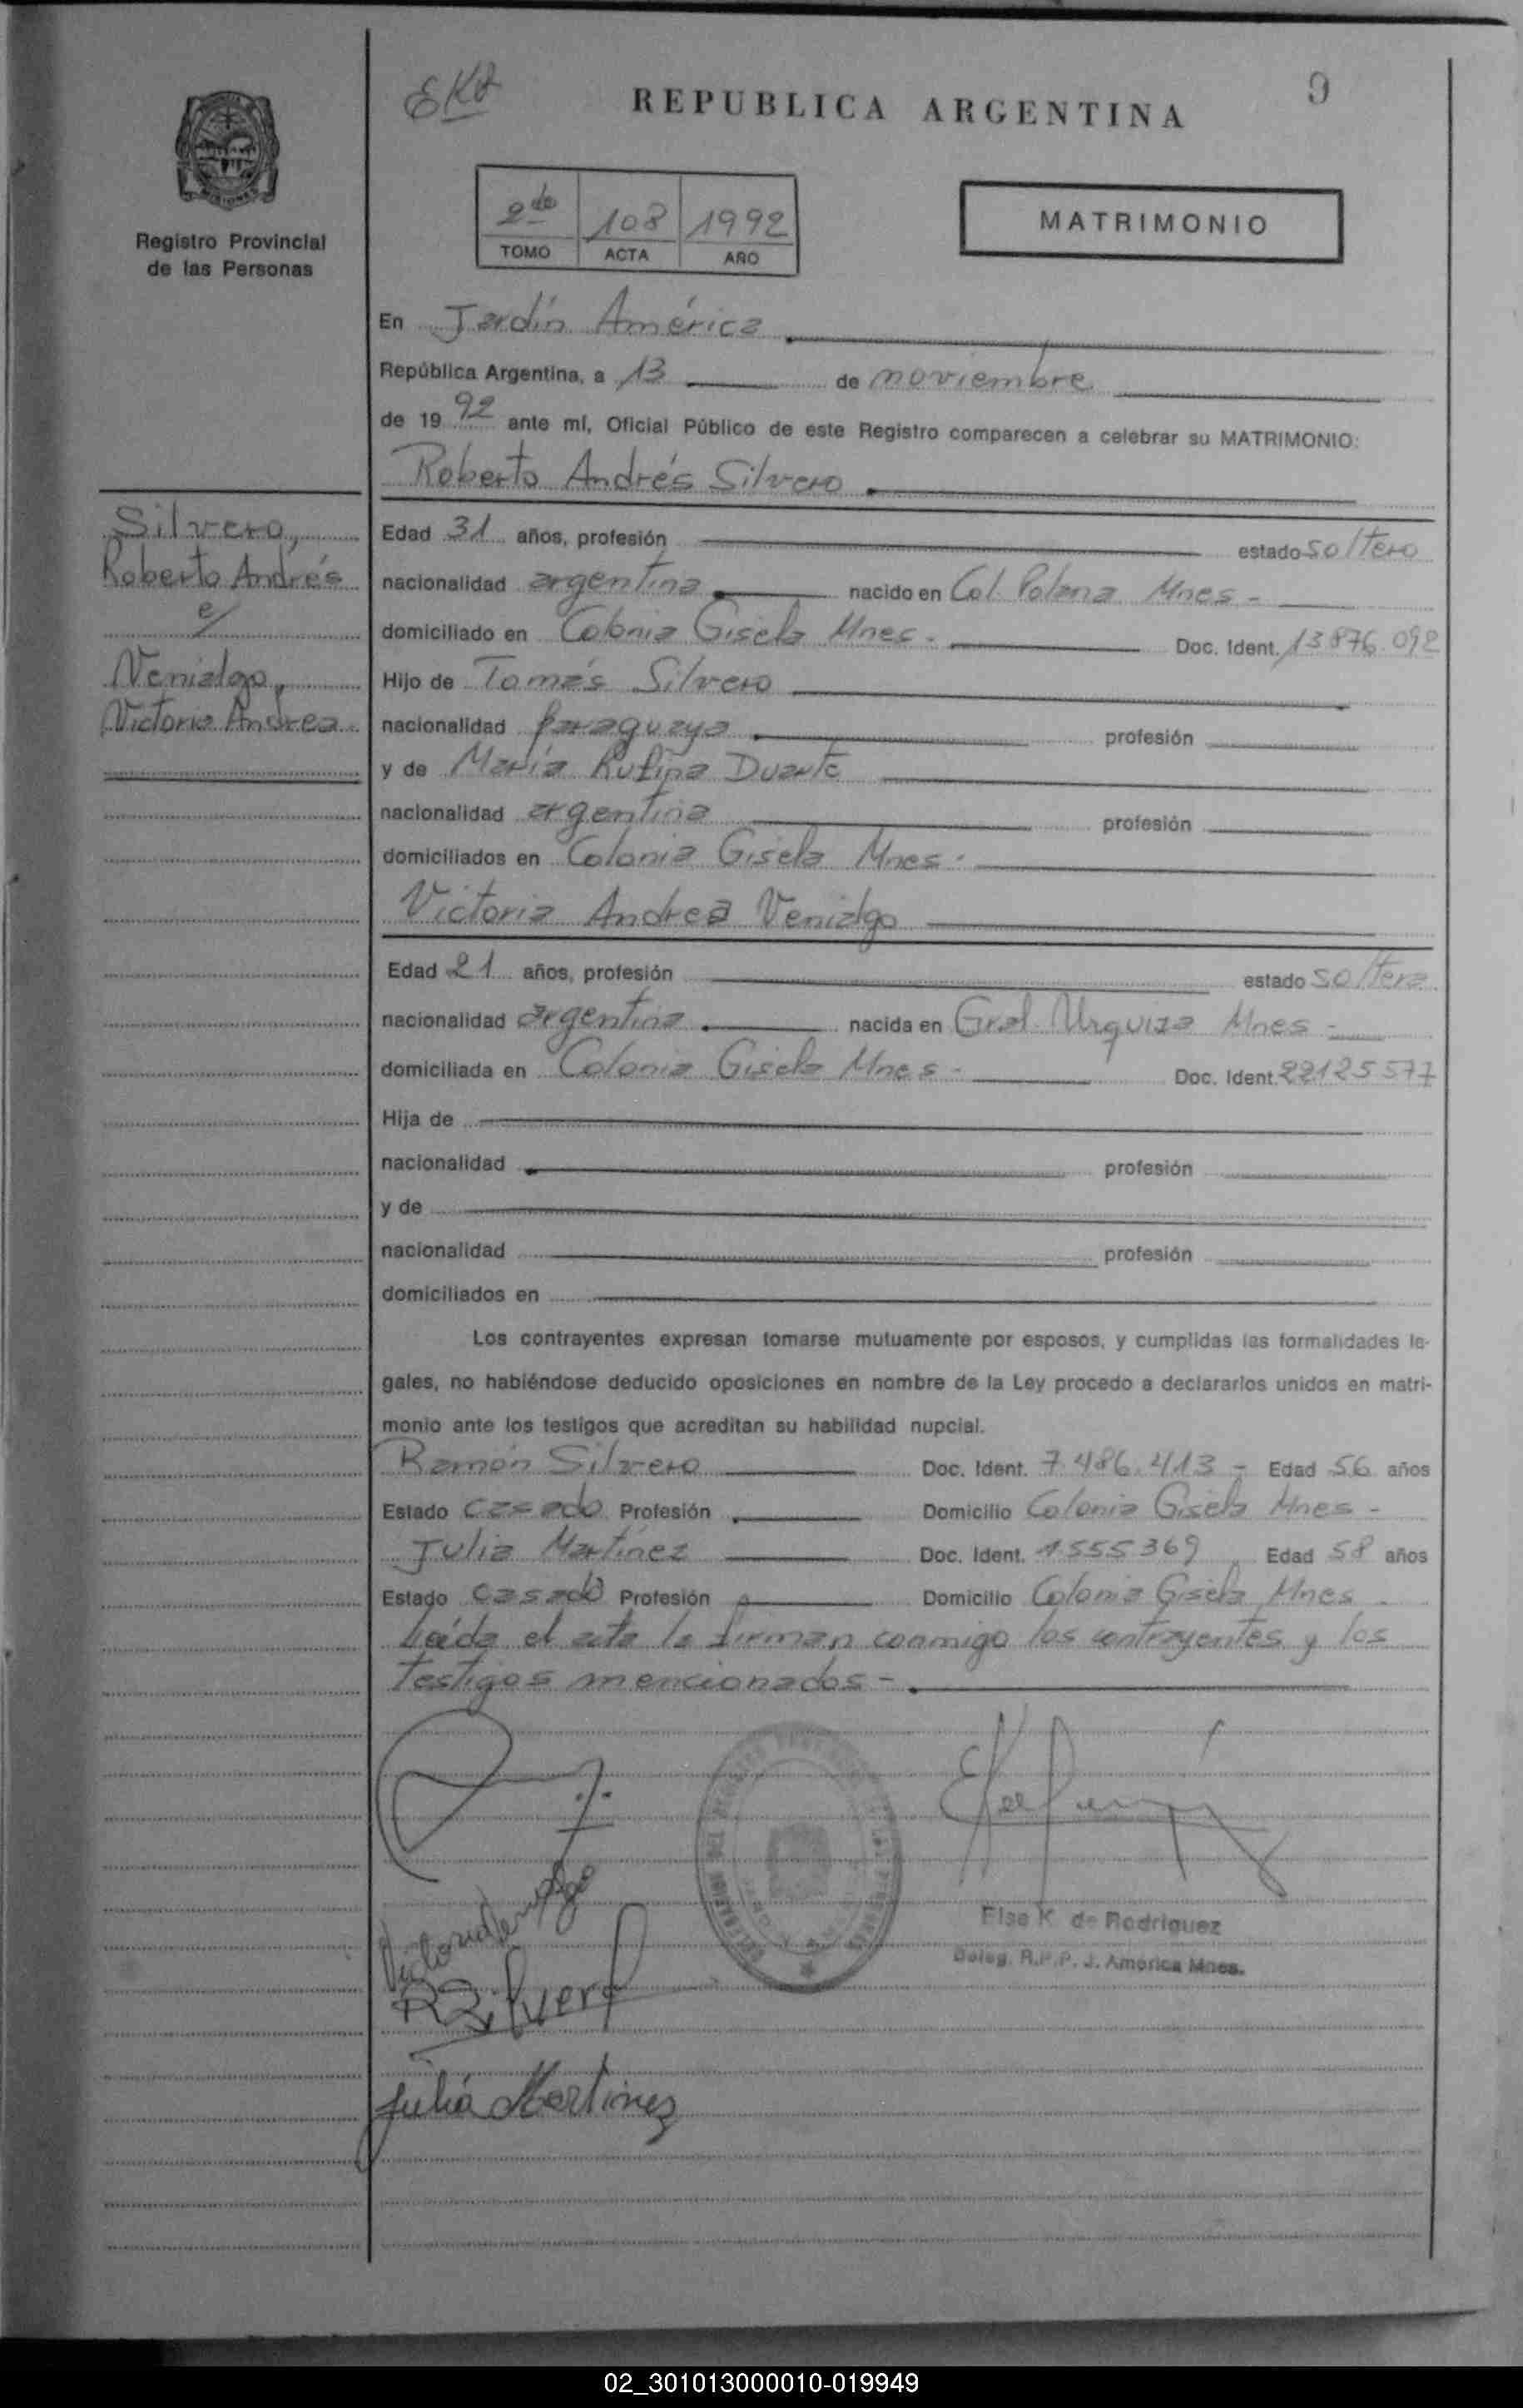 EKR
REPUBLICA ARGENTINA
9
MISIONES
Registro Provincial
de las Personas
2do 108 1992
TOMO ACTA AÑO
MATRIMONIO
En Jardín América
República Argentina, a 13 de noviembre
de 19 92 ante mí, Oficial Público de este Registro comparecen a celebrar su MATRIMONIO:
Roberto Andrés Silvero
Silvero,
Roberto Andrés
c/
Venialgo,
Victoria Andrea
Edad 31 años, profesión estado soltero
nacionalidad argentina nacido en Col. Polana Mnes -
domiciliado en Colonia Gisela Mnes. Doc. Ident. 13876.092
Hijo de Tomás Silvero
nacionalidad paraguaya profesión
y de María Rufina Duarte
nacionalidad argentina profesión
domiciliados en Colonia Gisela Mnes.
Victoria Andrea Venialgo
Edad 21 años, profesión estado soltera
nacionalidad argentina nacida en Gral. Urquiza Mnes -
domiciliada en Colonia Gisela Mnes - Doc. Ident. 22125577
Hija de
nacionalidad profesión
y de
nacionalidad profesión
domiciliados en
Los contrayentes expresan tomarse mutuamente por esposos, y cumplidas las formalidades le-
gales, no habiéndose deducido oposiciones en nombre de la Ley procedo a declararlos unidos en matri-
monio ante los testigos que acreditan su habilidad nupcial.
Ramón Silvero Doc. Ident. 7.486.413 - Edad 56 años
Estado casado Profesión Domicilio Colonia Gisela Mnes -
Julia Martínez Doc. Ident. 1555369 Edad 58 años
Estado casado Profesión Domicilio Colonia Gisela Mnes.
Leída el acta la firman conmigo los contrayentes y los
testigos mencionados -
Elsa K. de Rodriguez
Deleg. R.P.P. J. America Mnes.
R Silvero
Julia Martinez
02_301013000010-019949